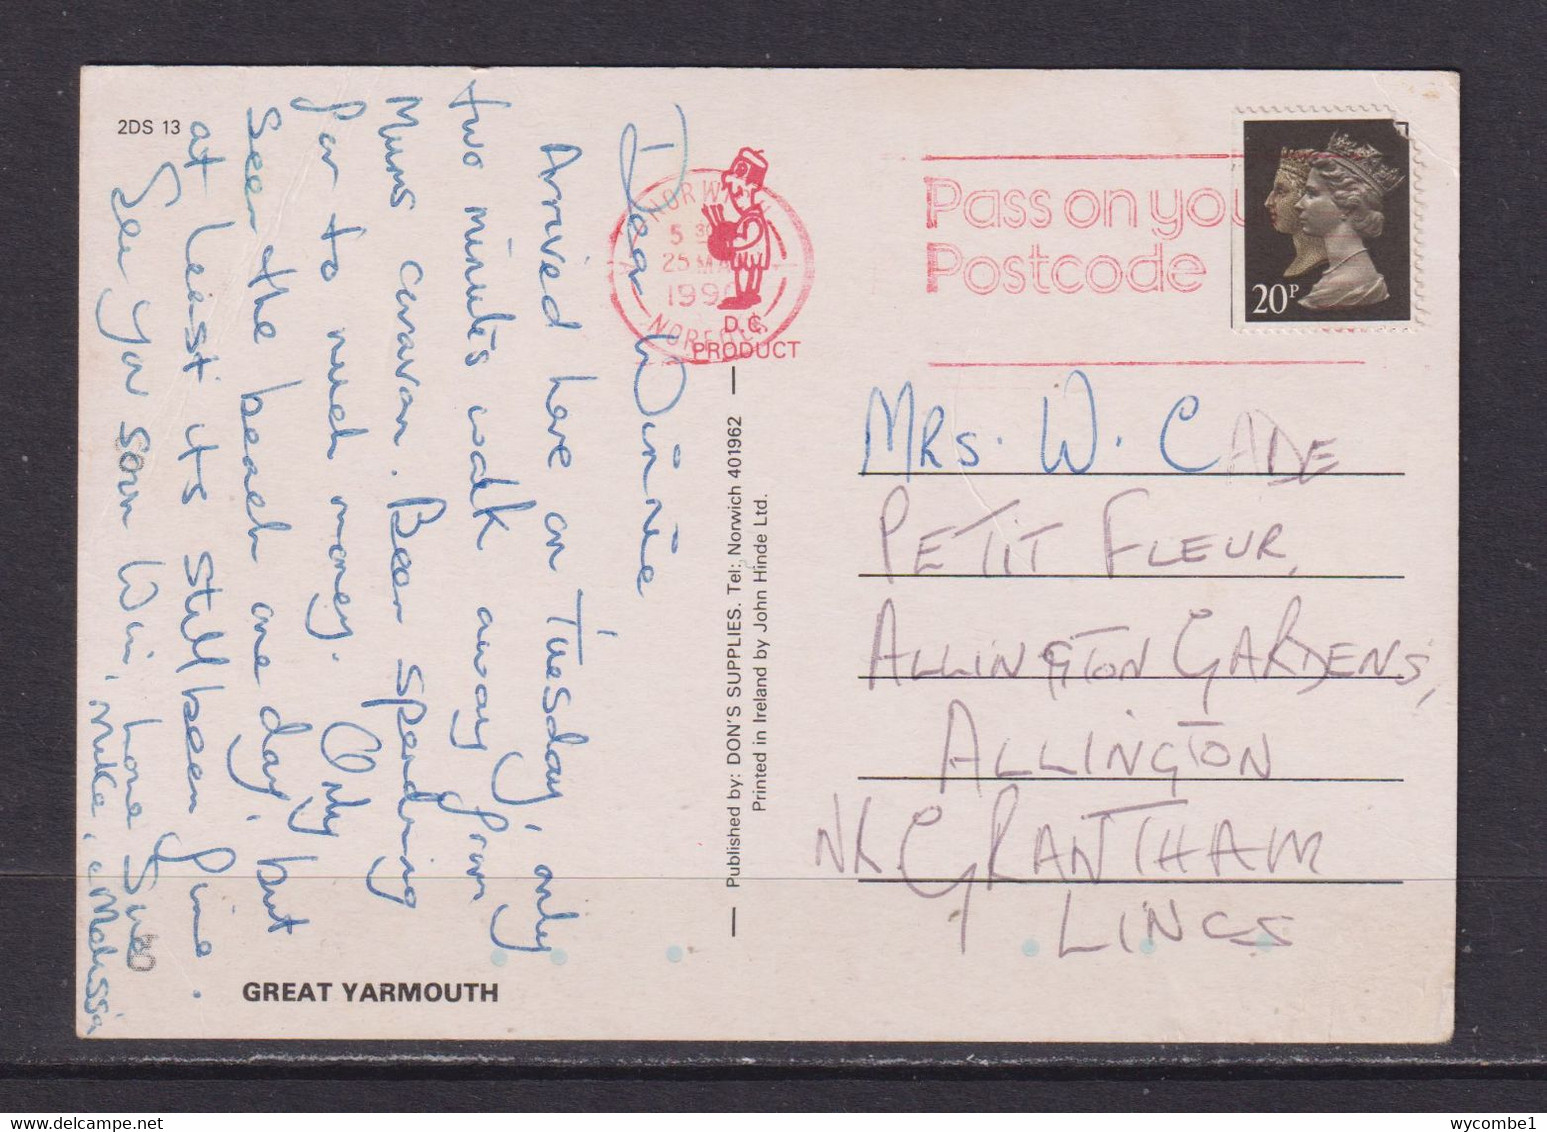 2DS 13
Dear Winnie
Arrived here on Tuesday, only
two minutes walk away from
Mums caravan. Been spending
far to much money. Only
Seen the beach one day, but
at least it's still been fine.
See you soon Win, love Sue
Mike, & Melissa
GREAT YARMOUTH
Published by: DON'S SUPPLIES. Tel: Norwich 401962
Printed in Ireland by John Hinde Ltd.
D.C.
PRODUCT
NORWICH
5 30
25 MA
1990
NORFOLK
Pass on you
Postcode
20P
MRS. W. CADE
PETIT FLEUR,
ALLINGTON GARDENS,
ALLINGTON
NR GRANTHAM
LINCS
wycombe1